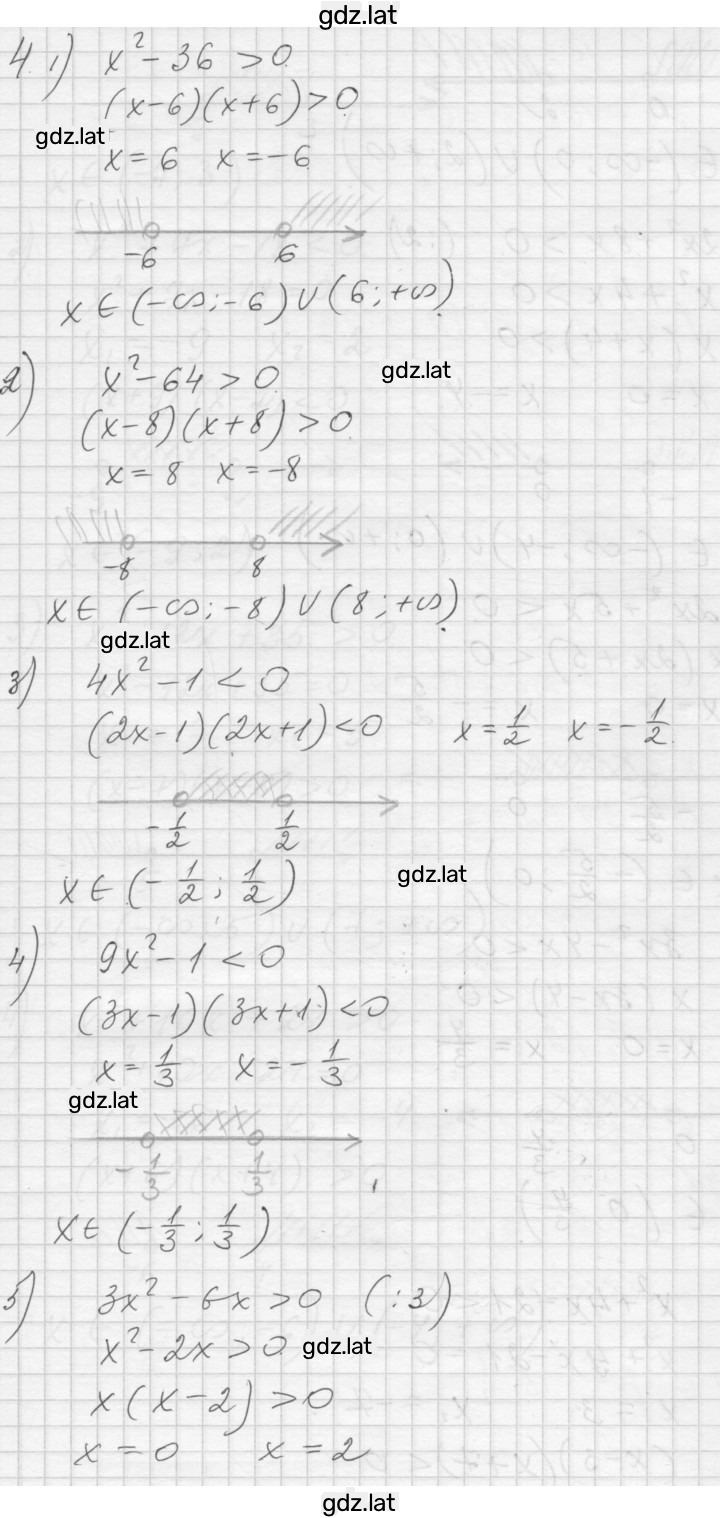 gdz.lat
4. 1) x² - 36 > 0
(x-6)(x+6) > 0
gdz.lat
x = 6 x = -6
-6 6
x ∈ (-∞; -6) ∪ (6; +∞)
2) x² - 64 > 0
gdz.lat
(x-8)(x+8) > 0
x = 8 x = -8
-8 8
x ∈ (-∞; -8) ∪ (8; +∞)
gdz.lat
3) 4x² - 1 < 0
(2x-1)(2x+1) < 0 x = 1/2 x = -1/2
-1/2 1/2
x ∈ (-1/2; 1/2)
gdz.lat
4) 9x² - 1 < 0
(3x-1)(3x+1) < 0
x = 1/3 x = -1/3
gdz.lat
-1/3 1/3
x ∈ (-1/3; 1/3)
5) 3x² - 6x > 0 (:3)
x² - 2x > 0
gdz.lat
x(x-2) > 0
x = 0 x = 2
gdz.lat